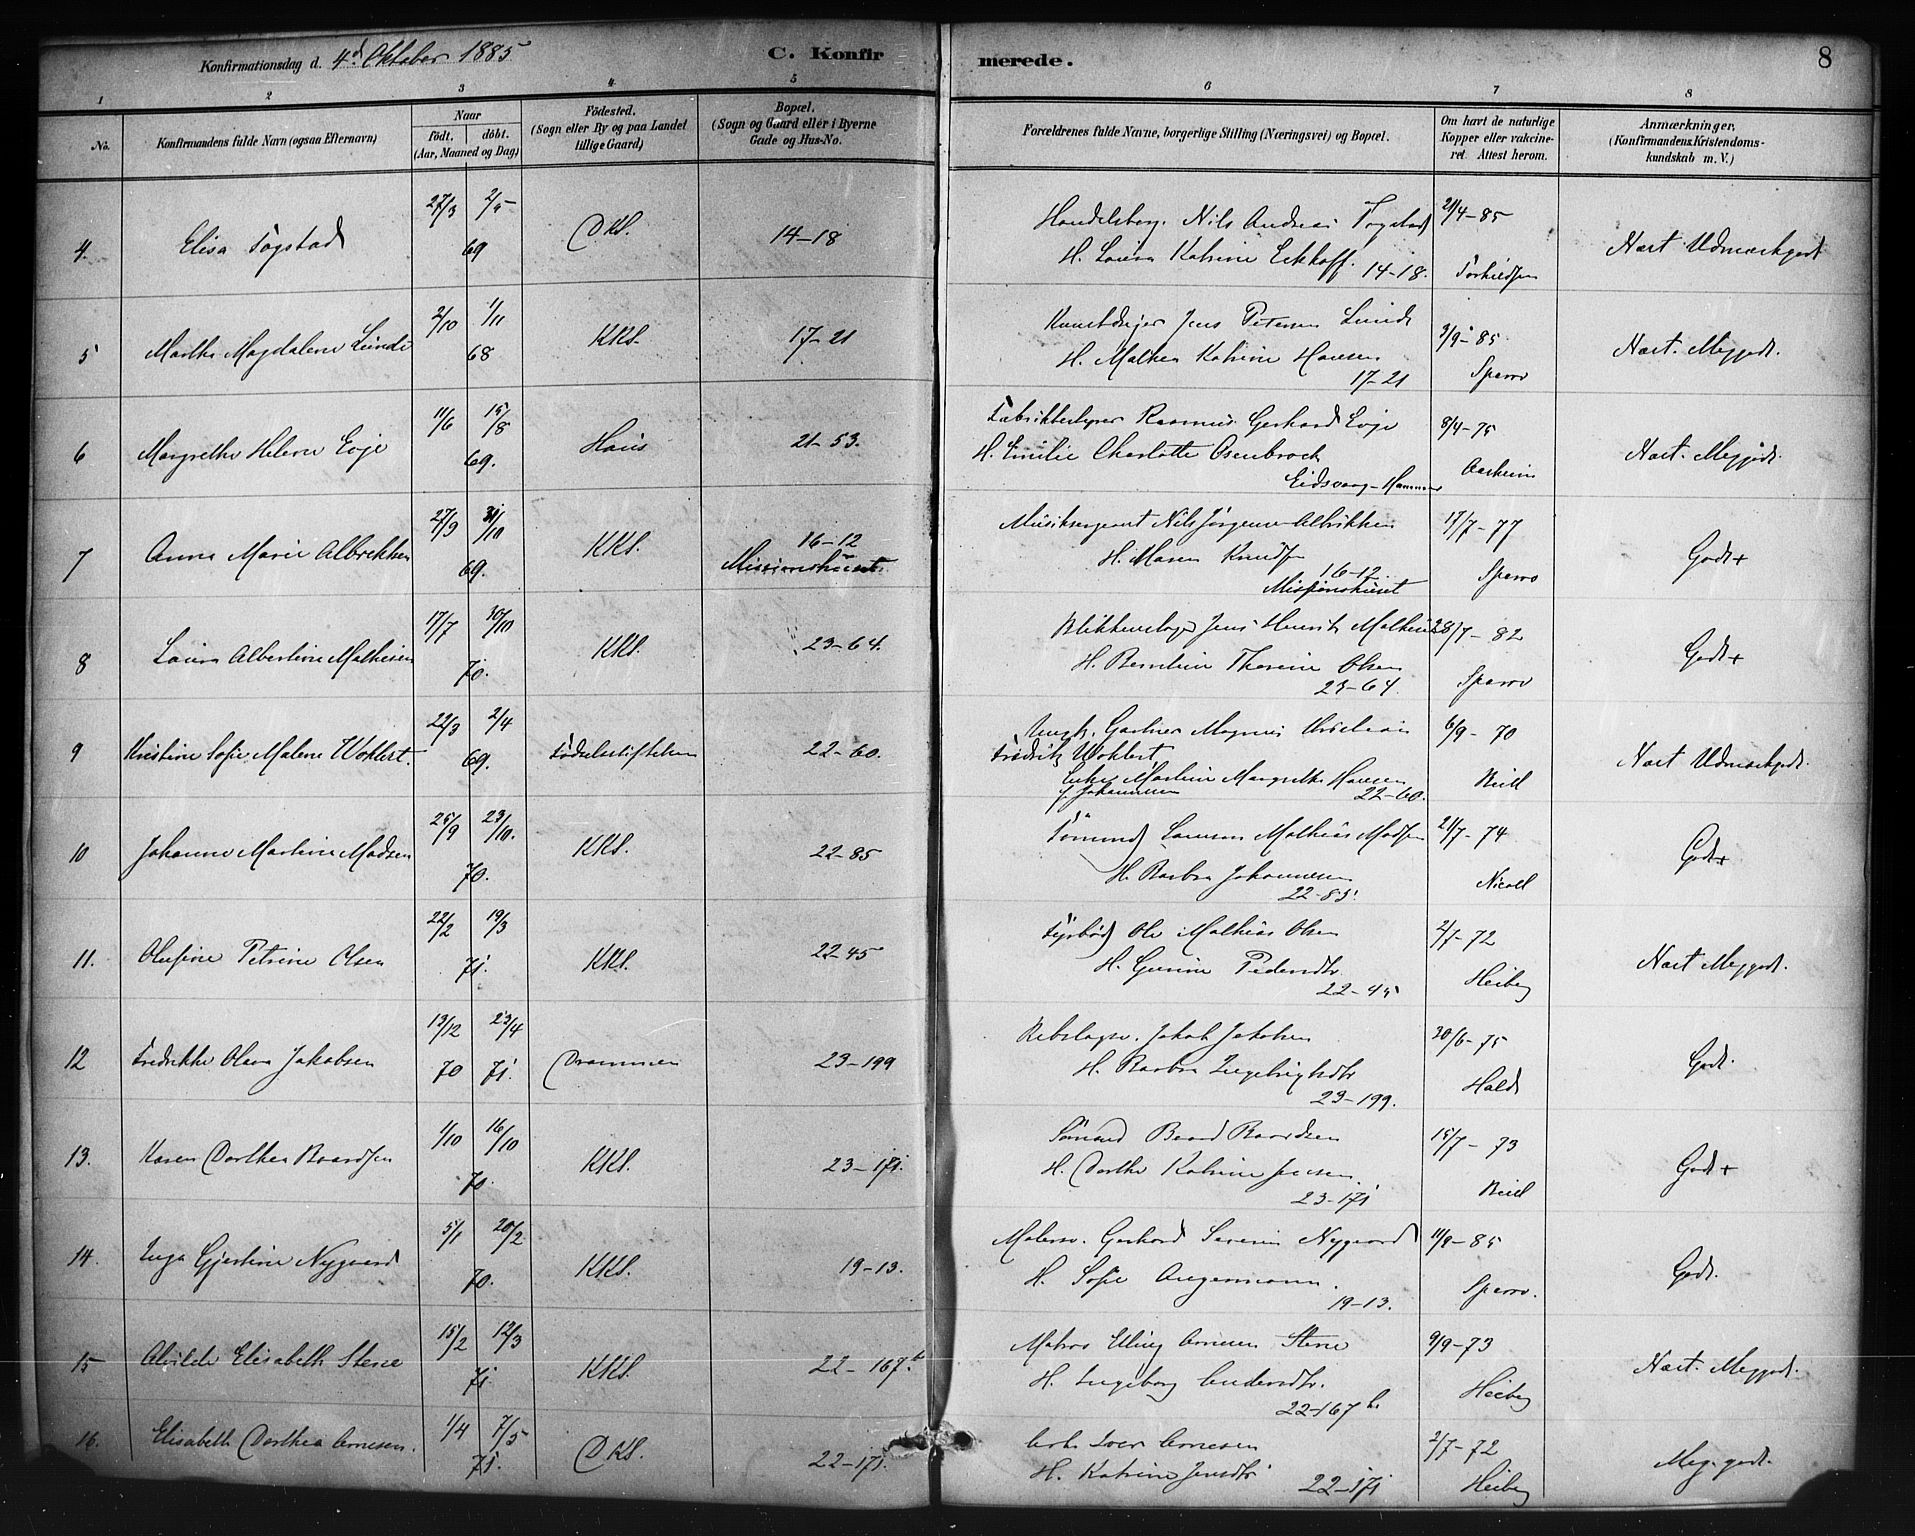 Konfirmationsdag d. 4d Oktober 1885 C. Konfirmerede. 8
1 2 3 4 5 6 7 8
No. Konfirmandens fulde Navn (ogsaa Efternavn) Naar født. døbt. (Aar, Maaned og Dag) Fødested. (Sogn eller By og paa Landet tillige Gaard) Bopæl. (Sogn og Gaard eller i Byerne Gade og Hus-No. Forældrenes fulde Navne, borgerlige Stilling (Næringsvei) og Bopæl. Om havt de naturlige Kopper eller vakcineret. Attest herom. Anmærkninger, (Konfirmandens Kristendomskundskab m. V.)
4. Elisa Fogstad 27/3 2/5 69 DKS. 14-18 Handelsborg. Nils Andreas Fogstad 21/4-85 Nært Udmærkgodt
H. Lovisa Katrine Eckhoff. 14-18.
5 Marthe Magdalene Lunde 2/10 1/11 68 KKS. 17-21 Kunstdrejer Jens Petersen Lunde 3/9-85. Nært. Meggodt.
H. Malene Katrine Hansen Sparre
17-21
6 Margrethe Helene Evje 11/6 15/8 69. Haus 21-53. Fabrikbestyrer Rasmus Gerhard Evje 8/4-75 Nært. Meggodt.
H. Emilie Charlotte Osenbrock
Eidsvaag-Hammer
7 Anna Marie Albrektsen 27/9 31/10 69. KKS. 16-12 Missionshuset. Musiksergeant Nils Jørgensen Albriktsen 17/7-77 Godt+
H. Maren Knudsen Sparre
16-12.
Missionshuset
8 Laura Albertine Mathisen 17/7 30/10 70. KKS. 23-64. Blikkenslager Jens Henrik Mathisen 28/7-82 Godt+
H. Berntine Therine Olsen Sparre
23-64.
9 Kristine Sofie Malene Wohlert. 22/3 2/4 69. Fødselsstiftelsen 22-60. Ungk. Gartner Magnus Kristian 6/9-70 Nært Udmærkgodt.
Fredrik Wohlert
Enke Martine Margrethe Hansen
f. Johannesen 22-60.
10 Johanne Martine Madsen 25/9 23/10. 70. KKS. 22-85 Sømand Mathias Madsen 21/7-74 Godt+
H. Barbra Johannesen
22-85.
11. Olufine Petrine Olsen 22/2 19/3 71. KKS. 22-45 Fyrbød. Ole Mathias Olsen 2/7-72 Nært Meggodt.
H. Gurine Pedersdtr. Heiberg
22-45
12 Fredrikke Olava Jakobsen 13/12 70 23/4 71. Drammen 23-199 Rebslager. Jakob Jakobsen 30/6-75 Godt.
H. Barbra Ingebrigtsdtr Hald
23-199.
13. Karen Dorthea Baardsen 1/10 16/10 70. KKS. 23-171. Sømand Baard Baardsen 15/7-73 Godt+
H. Dorthe Katrine Jensen
23-171
14. Inga Gjertine Nygaard 5/1 20/2 70. KKS. 19-13. Malersv. Gerhard Severin Nygaard 11/9-85 Godt.
H. Sofie Angermann. Sparre.
19-13.
15 Alvilde Elisabeth Stene 15/2 12/3 71. KKS. 22-167.b Matros Elling Arnesen Stene 9/9-73 Nært. Meggodt.
H. Ingeborg Andersdtr. Heiberg
22-167 b.
16. Elisabeth Dorthea Arnesen. 1/4 7/5 71. DKS. 22-171. Arb. Iver Arnesen 2/7-72 Meg. godt.
H. Katrine Jensdtr 22-171 Heiberg